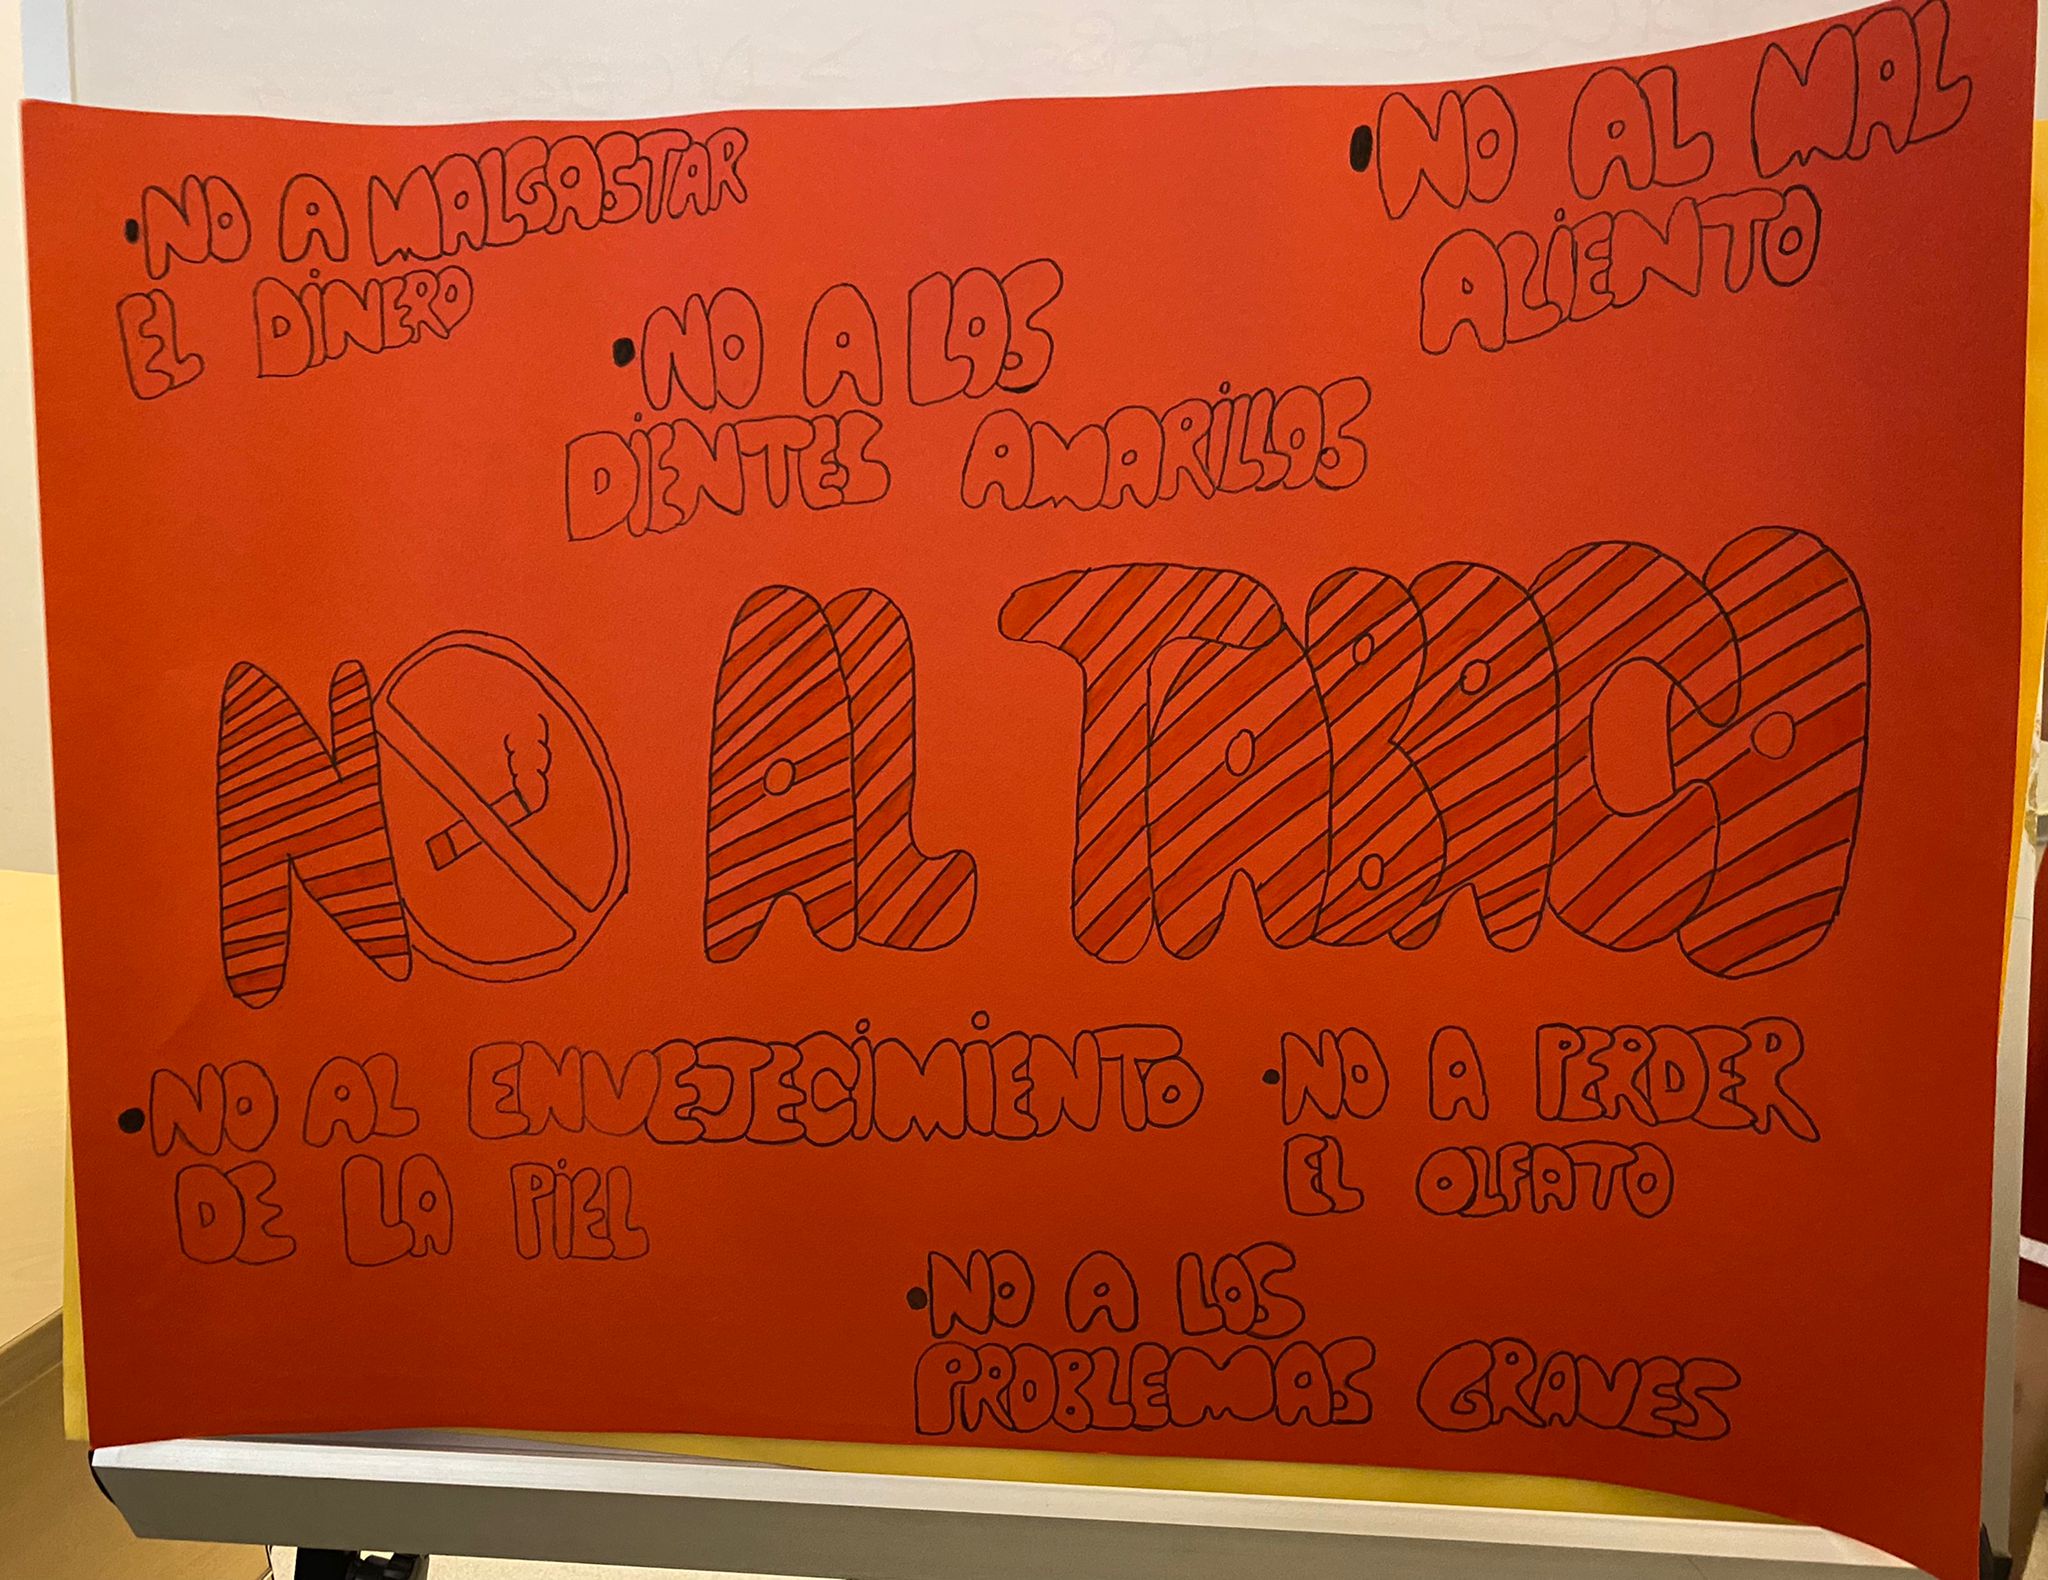 • NO A MALGASTAR
EL DINERO
• NO AL MAL
ALIENTO
• NO A LOS
DIENTES AMARILLOS
NO AL TABACO
• NO AL ENVEJECIMIENTO
DE LA PIEL
• NO A PERDER
EL OLFATO
• NO A LOS
PROBLEMAS GRAVES